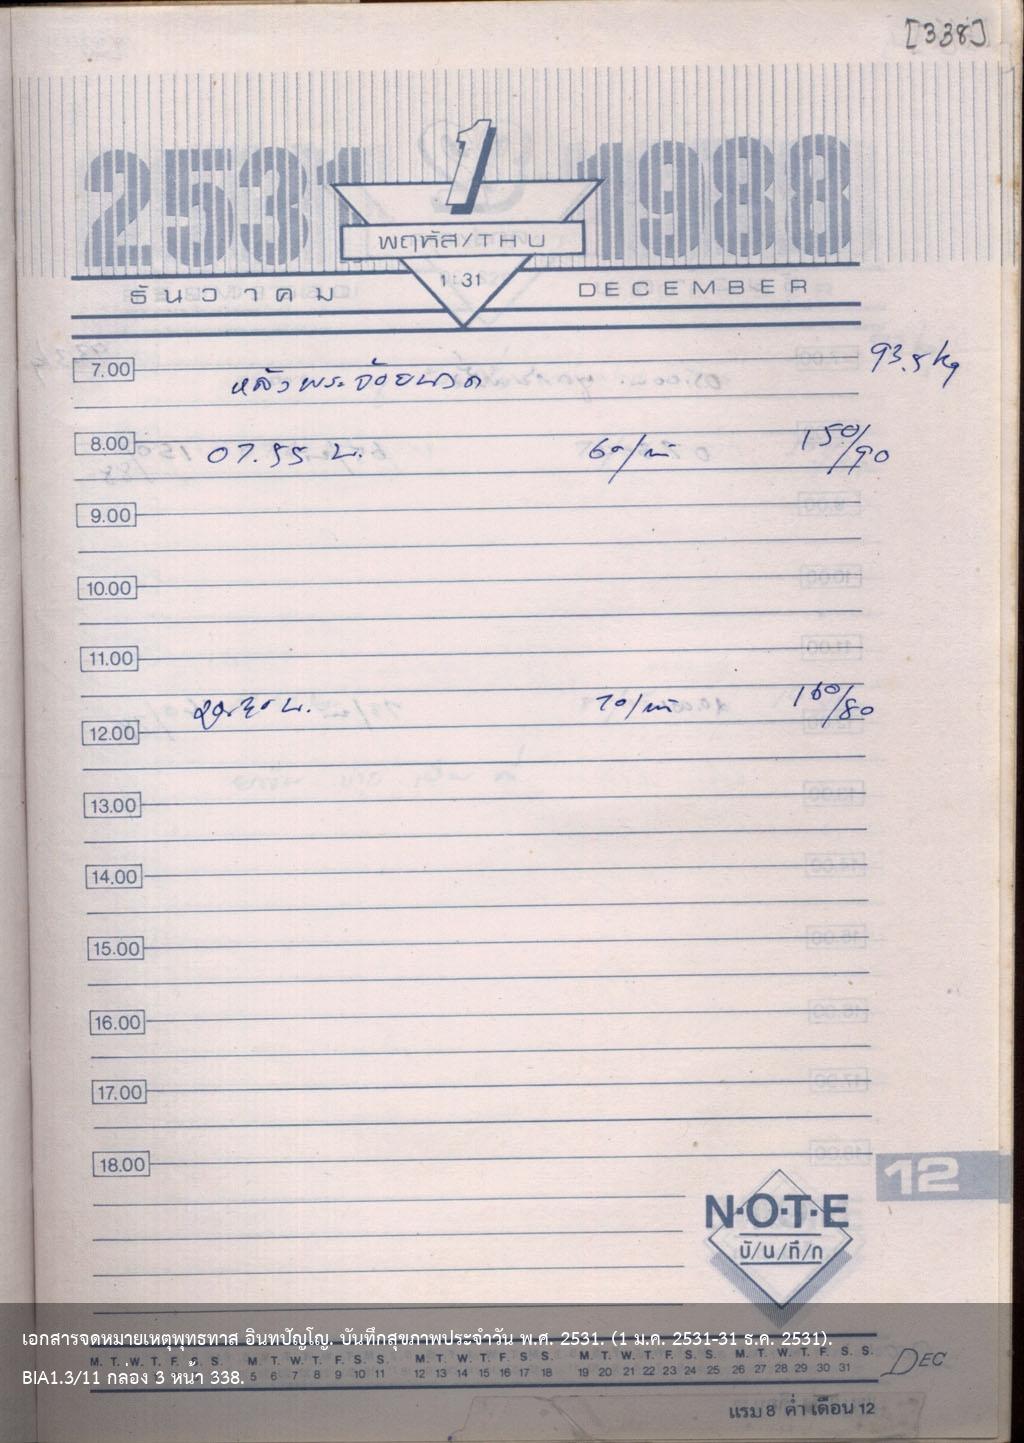 [338]
2531 1 1988
พฤหัส/THU
11:31
ธันวาคม DECEMBER
93.5 kg
7.00 หลัง พระ จ้อย นวด
8.00 07.55 น. 60/ 150/90
9.00
10.00
11.00
น. 70/ 160/80
12.00
13.00
14.00
15.00
16.00
17.00
18.00
12
N·O·T·E
บั/น/ทึ/ก
เอกสารจดหมายเหตุพุทธทาส อินทปัญโญ. บันทึกสุขภาพประจำวัน พ.ศ. 2531. (1 ม.ค. 2531-31 ธ.ค. 2531).
M. T. W. T. F. S. S. M. T. W. T. F. S. S. M. T. W. T. F. S. S. M. T. W. T. F. S. S. M. T. W. T. F. S. S.
BIA1.3/11 กล่อง 3 หน้า 338. 5 6 7 8 9 10 11 12 13 14 15 16 17 18 19 20 21 22 23 24 25 26 27 28 29 30 31
DEC
แรม 8 ค่ำ เดือน 12